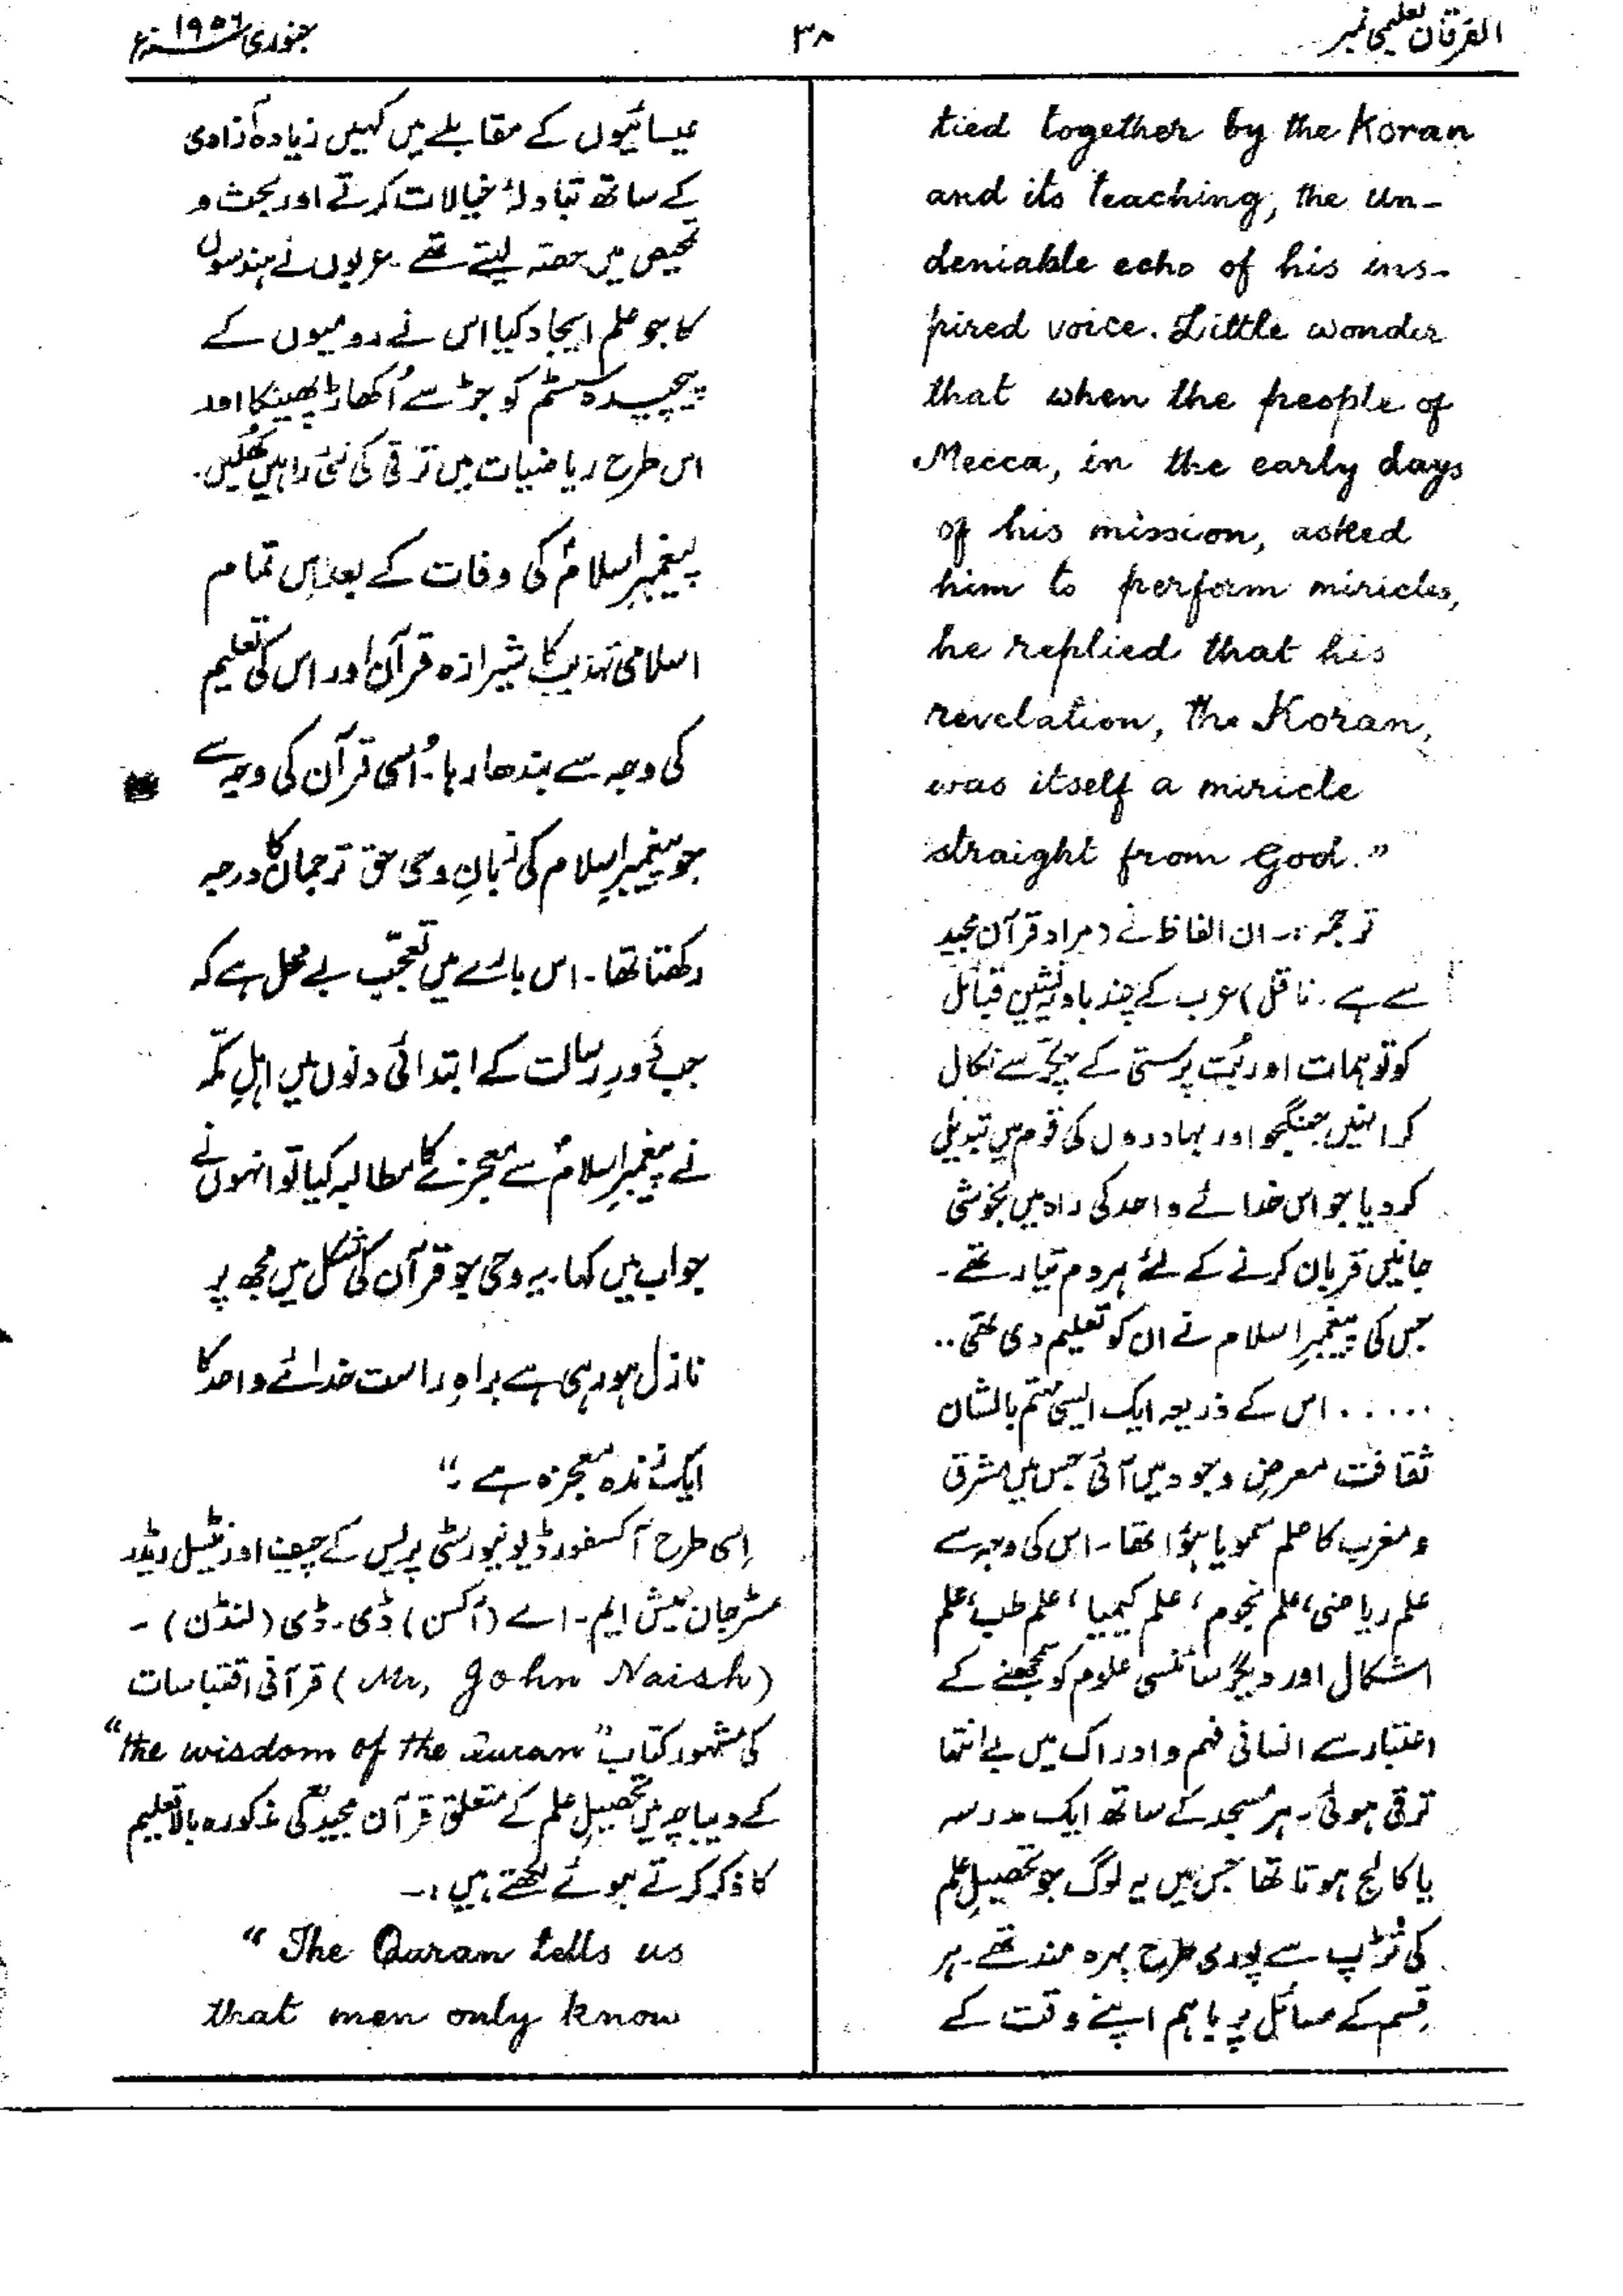 الفرقان تعلیمی نمبر
۳۸
جنوری ۱۹۵۶ء
tied together by the Koran
and its teaching, the un-
deniable echo of his ins-
pired voice. Little wonder
that when the people of
Mecca, in the early days
of his mission, asked
him to perform miricles,
he replied that his
revelation, the Koran,
was itself a miricle
straight from God."
ترجمہ:۔ ان الفاظ نے (مراد قرآن مجید
سے ہے۔ ناقل) عرب کے چند بادیہ نشین قبائل
کو توہمات اور بُت پرستی کے چکّر سے نکال
کر انہیں جنگجو اور بہادروں کی قوم میں تبدیل
کر دیا جو اس خدائے واحد کی راہ میں بخوشی
جانیں قربان کرنے کے لئے ہر دم تیار تھے۔
جس کی پیغمبرِ اسلام نے ان کو تعلیم دی تھی..
..... اس کے ذریعہ ایک ایسی مہتم بالشان
ثقافت معرضِ وجود میں آئی جس میں مشرق
و مغرب کا علم سمویا ہؤا تھا۔ اس کی وجہ سے
علم ریاضی، علم نجوم، علم کیمیا، علم طب، علم
اشکال اور دیگر سائنسی علوم کو سمجھنے کے
اعتبار سے انسانی فہم و ادراک میں بے انتہا
ترقی ہوئی۔ ہر مسجد کے ساتھ ایک مدرسہ
یا کالج ہوتا تھا جس میں یہ لوگ جو تحصیلِ علم
کی تڑپ سے پوری طرح بہرہ مند تھے۔ ہر
قِسم کے مسائل پر باہم اپنے وقت کے
عیسائیوں کے مقابلے میں کہیں زیادہ آزادی
کے ساتھ تبادلۂ خیالات کرتے اور بحث و
تمحیص میں حصّہ لیتے تھے۔ عربوں نے ہندسوں
کا جو علم ایجاد کیا اس نے رومیوں کے
پیچیدہ سسٹم کو جڑ سے اُکھاڑ پھینکا اور
اس طرح ریاضیات میں ترقی کی نئی راہیں کُھلیں۔
پیغمبرِ اسلامؐ کی وفات کے بعد اِس تمام
اسلامی تہذیب کا شیرازہ قرآن اور اس کی تعلیم
کی وجہ سے بندھا رہا۔ اُسی قرآن کی وجہ سے
جو پیغمبرِ اسلام کی زبانِ وحی حق ترجمان کا درجہ
رکھتا تھا۔ اس بارے میں تعجّب بے محل ہے کہ
جب دَورِ رسالت کے ابتدائی دنوں میں اہلِ مکّہ
نے پیغمبرِ اسلامؐ سے معجزے کا مطالبہ کیا تو انہوں نے
جواب میں کہا۔ یہ وحی جو قرآن کی شکل میں مجھ پر
نازل ہو رہی ہے براہِ راست خدائے واحد کا
ایک زندہ معجزہ ہے۔"
اِسی طرح آکسفورڈ یونیورسٹی پریس کے چیف اورنٹیل ریڈر
مسٹر جان نیش ایم۔ اے (آکسن) ڈی۔ ڈی (لنڈن)۔
(Mr, John Naish) قرآنی اقتباسات
کی مشہور کتاب "the wisdom of the Quran"
کے دیباچہ میں تحصیلِ علم کے متعلق قرآن مجید کی مذکورہ بالا تعلیم
کا ذکر کرتے ہوئے لکھتے ہیں:۔
"The Quran tells us
that men only know